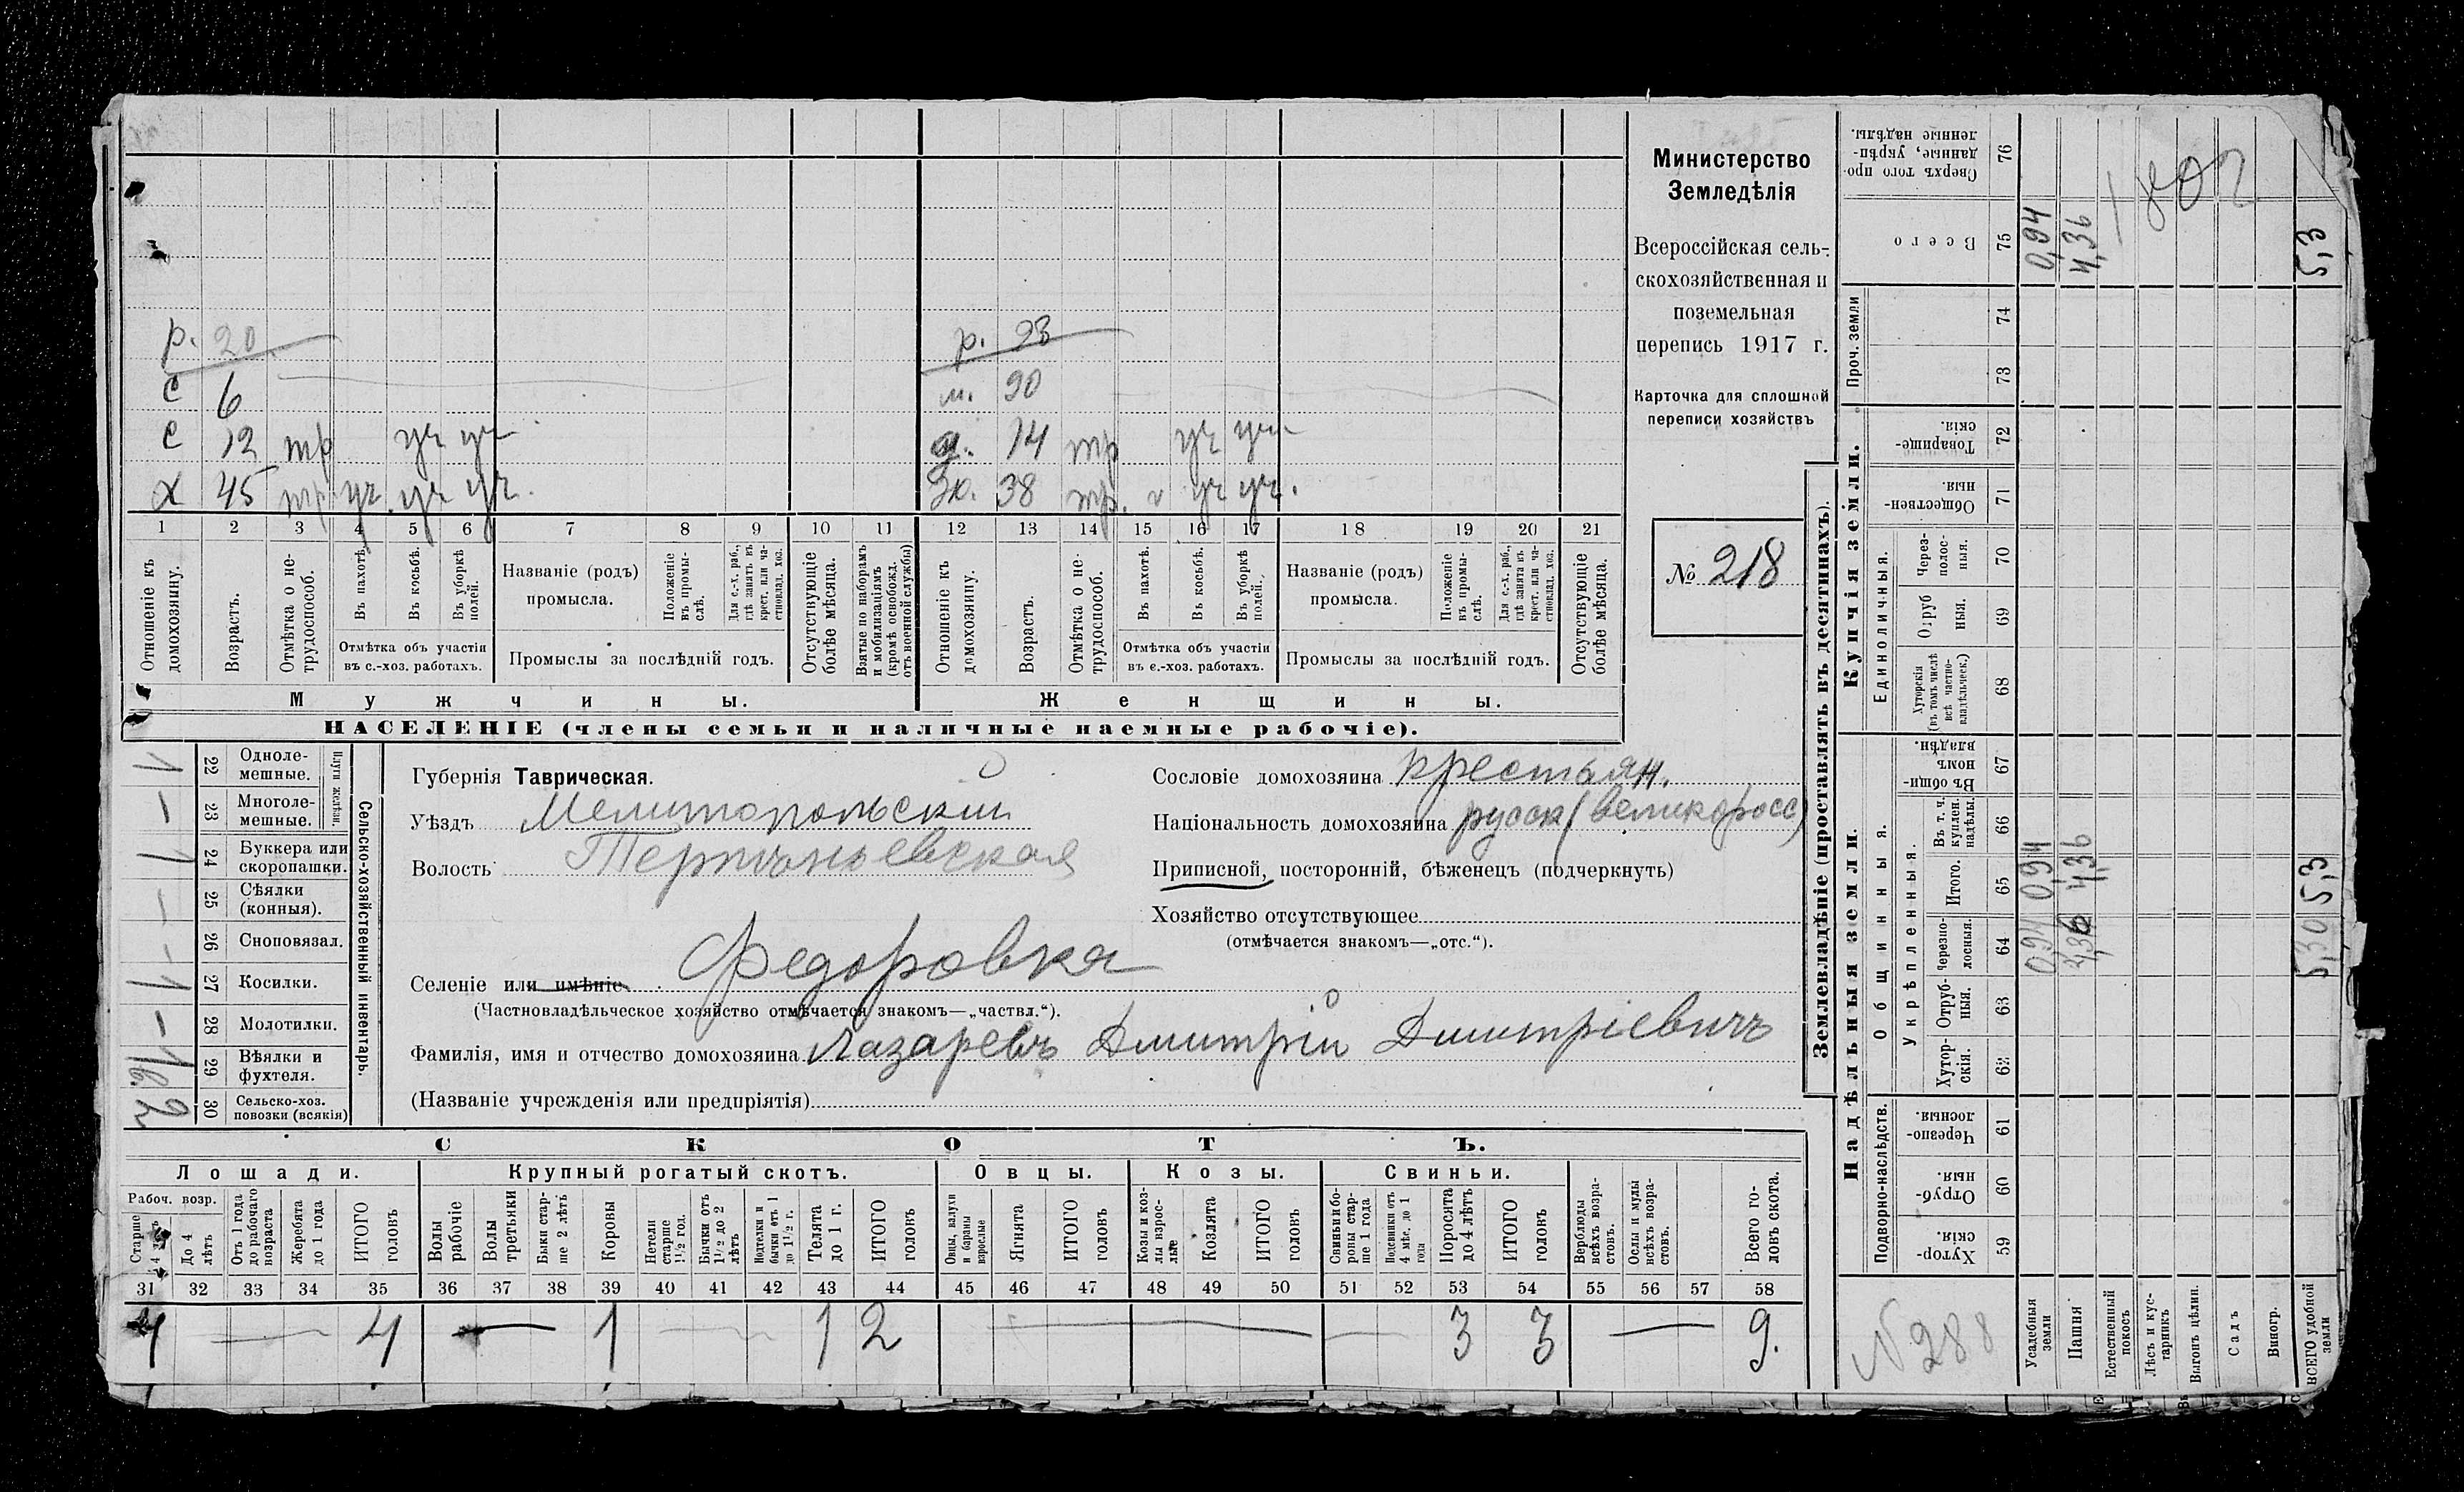 Министерство
Земледѣлія
Всероссійская сель-
скохозяйственная и
поземельная
перепись 1917 г.
Карточка для сплошной
переписи хозяйствъ
№ 218
р. 20
р. 23
с 6
м. 90
с 12 тр уч уч
д. 14 тр уч уч
х 45 тр уч. уч уч.
ж. 38 тр. уч уч.
1 2 3 4 5 6 7 8 9 10 11 12 13 14 15 16 17 18 19 20 21
Отношеніе къ домохозяину.
Возрастъ.
Отмѣтка о не-трудоспособ.
Въ пахотѣ.
Въ косьбѣ.
Въ уборкѣ полей.
Отмѣтка объ участіи въ с.-хоз. работахъ.
Названіе (родъ) промысла.
Положеніе въ промы-слѣ.
Для с.-х. раб., гдѣ занятъ въ крест. или ча-стновлад. хоз.
Промыслы за послѣдній годъ.
Отсутствующіе болѣе мѣсяца.
Взятые по наборамъ и мобилизаціямъ (кромѣ освобожд. отъ военной службы)
Отношеніе къ домохозяину.
Возрастъ.
Отмѣтка о не-трудоспособ.
Въ пахотѣ.
Въ косьбѣ.
Въ уборкѣ полей.
Отмѣтка объ участіи въ с.-хоз. работахъ.
Названіе (родъ) промысла.
Положеніе въ промы-слѣ.
Для с.-х. раб., гдѣ занята въ крест. или ча-стновлад. хоз.
Промыслы за послѣдній годъ.
Отсутствующіе болѣе мѣсяца.
Мужчины. Женщины.
НАСЕЛЕНІЕ (члены семьи и наличные наемные рабочіе).
Сельско-хозяйственный инвентарь.
Плуги желѣзн.
1 22 Одноле-мешные.
— 23 Многоле-мешные.
1 24 Буккера или скоропашки.
— 25 Сѣялки (конныя).
— 26 Сноповязал.
1 27 Косилки.
— 28 Молотилки.
29 Вѣялки и фухтеля.
30 Сельско-хоз. повозки (всякія)
Губернія Таврическая.
Уѣздъ Мелитопольскій
Волость
Селеніе или имѣніе Федоровка
(Частновладѣльческое хозяйство отмѣчается знакомъ—„частвл.“).
Фамилія, имя и отчество домохозяина Лазаревъ Дмитрій Дмитріевичъ
(Названіе учрежденія или предпріятія)
Сословіе домохозяина крестьян.
Національность домохозяина русск (великоросс)
Приписной, посторонній, бѣженецъ (подчеркнуть)
Хозяйство отсутствующее
(отмѣчается знакомъ—„отс.“).
СКОТЪ.
Лошади. Крупный рогатый скотъ. Овцы. Козы. Свиньи.
Рабоч. возр.
Старше 4 лѣтъ
До 4 лѣтъ
Отъ 1 года до рабочаго возраста
Жеребята до 1 года
ИТОГО головъ
Волы рабочіе
Волы третьяки
Быки стар-ше 2 лѣтъ
Коровы
Нетели старше 1½ год.
Бычки отъ 1½ до 2 лѣтъ
Подтелки и бычки отъ 1 до 1½ г.
Телята до 1 г.
ИТОГО головъ
Овцы, валухи и бараны взрослые
Ягнята
ИТОГО головъ
Козы и коз-лы взрос-лые
Козлята
ИТОГО головъ
Свиньи и бо-ровы стар-ше 1 года
Подсвинки отъ 4 мѣс. до 1 года
Поросята до 4 лѣтъ
ИТОГО головъ
Верблюды всѣхъ возра-стовъ.
Ослы и мулы всѣхъ возра-стовъ.
Всего го-ловъ скота.
31 32 33 34 35 36 37 38 39 40 41 42 43 44 45 46 47 48 49 50 51 52 53 54 55 56 57 58
4 — 4 — 1 — 1 2 — — 3 3 — 9.
Землевладѣніе (проставлять въ десятинахъ).
Купчія земли.
Надѣльныя земли.
Сверхъ того про-данные, укрѣп-ленные надѣлы. 76
Всего 75
Проч. земли 74 73
Товарище-скія. 72
Обществен-ныя. 71
Единоличныя.
Через-полос-ныя. 70
Отруб ныя. 69
Хуторскія (въ томъ числѣ всѣ частно-владѣльческ.) 68
Общинныя.
Въ общин-номъ владѣн. 67
Укрѣпленныя.
Въ т. ч. куплен. надѣлы. 66
Итого. 65
Черезпо-лосныя. 64
Отруб-ныя. 63
Хутор-скія. 62
Подворно-наслѣдств.
Черезпо-лосныя. 61
Отруб-ныя. 60
Хутор-скія. 59
Усадебныя земли 0,94 0,94 0,94
Пашня 4,36 4,36 4,36
Естественный покосъ
Лѣсъ и кус-тарникъ
Выгонъ цѣлин.
Садъ
Виногр.
ВСЕГО удобной земли 5,30 5,3 5,3
N 288